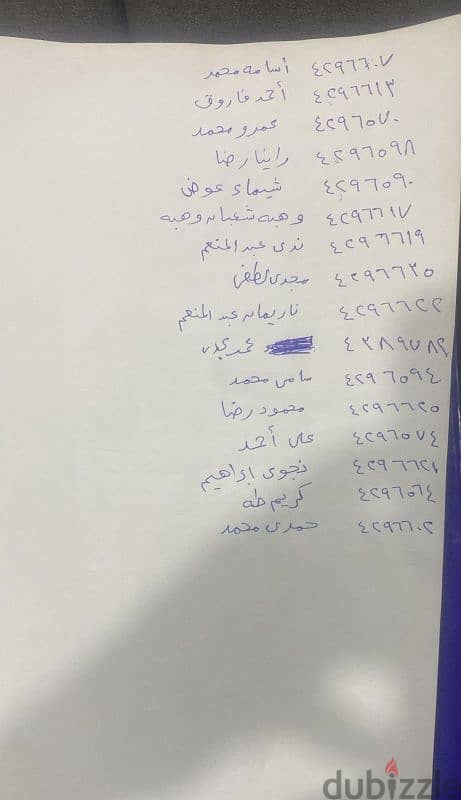 ٤٢٩٦٦٠٧ أسامه محمد
٤٢٩٦٦١٣ أحمد فاروق
٤٢٩٦٥٧٠ عمرو محمد
٤٢٩٦٥٩٨ راينا رضا
٤٢٩٦٥٩٠ شيماء عوض
٤٢٩٦٦١٧ وهبه شعبان وهبه
٤٢٩٦٦١٩ ندى عبد المنعم
٤٢٩٦٦٣٥ مجدى لطفى
٤٢٩٦٦٢٢ ناريمان عبد المنعم
محمد
٤٢٩٦٥٩٤ سامى محمد
٤٢٩٦٦٢٥ محمود رضا
٤٢٩٦٥٧٤ على أحمد
نجوى ابراهيم
٤٢٩٦٥٦٤ كريم طه
٤٢٩٦٦٠٢ حمدى محمد
dubizzle